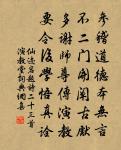 參稽道德本無言
不二門開闡古獻
多謝師尊傳演教
要令後學悟真詮
仙迹岩題詩二十三首
演教堂詞典網集